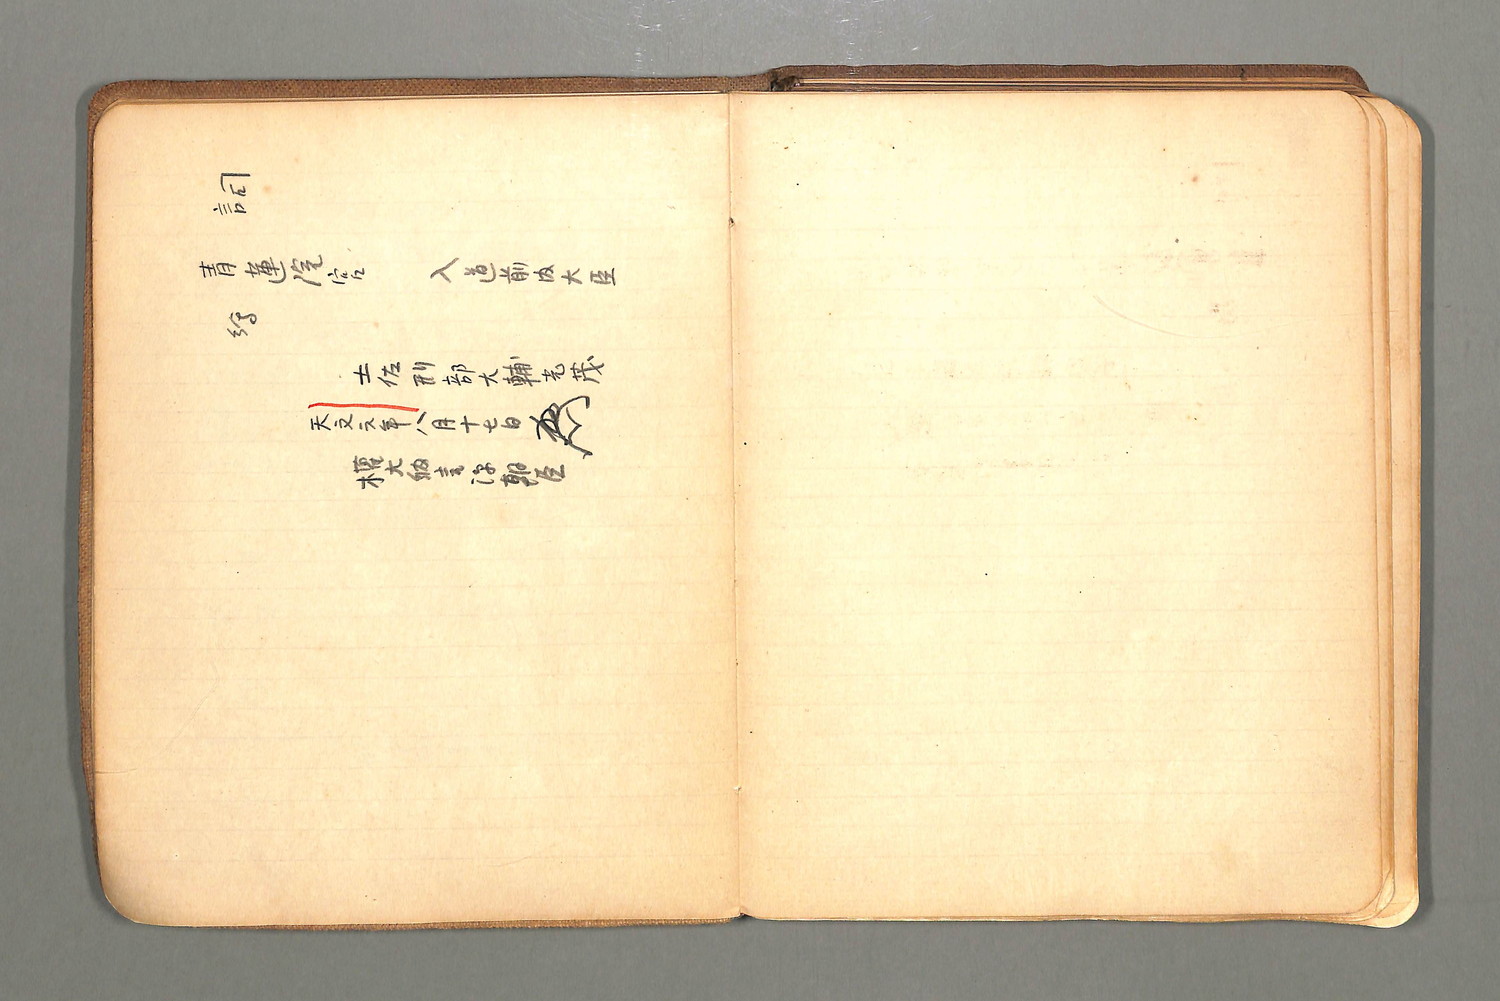 詞
青蓮院宮　入道前内大臣
絵
土佐刑部大輔光茂
天文元年八月十七日
権大納言源朝臣